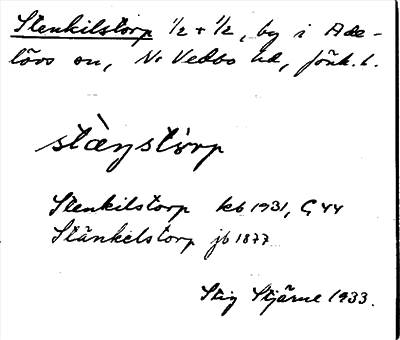 Stenkilstorp 1/2 + 1/2, by i Ade-
lövs sn, N. Vedbo hd, Jönk. l.
stæ̀ŋstòrp
Stenkilstorp kb 1931, G 44
Stänkelstorp jb 1877
Stig Stjärne 1933.